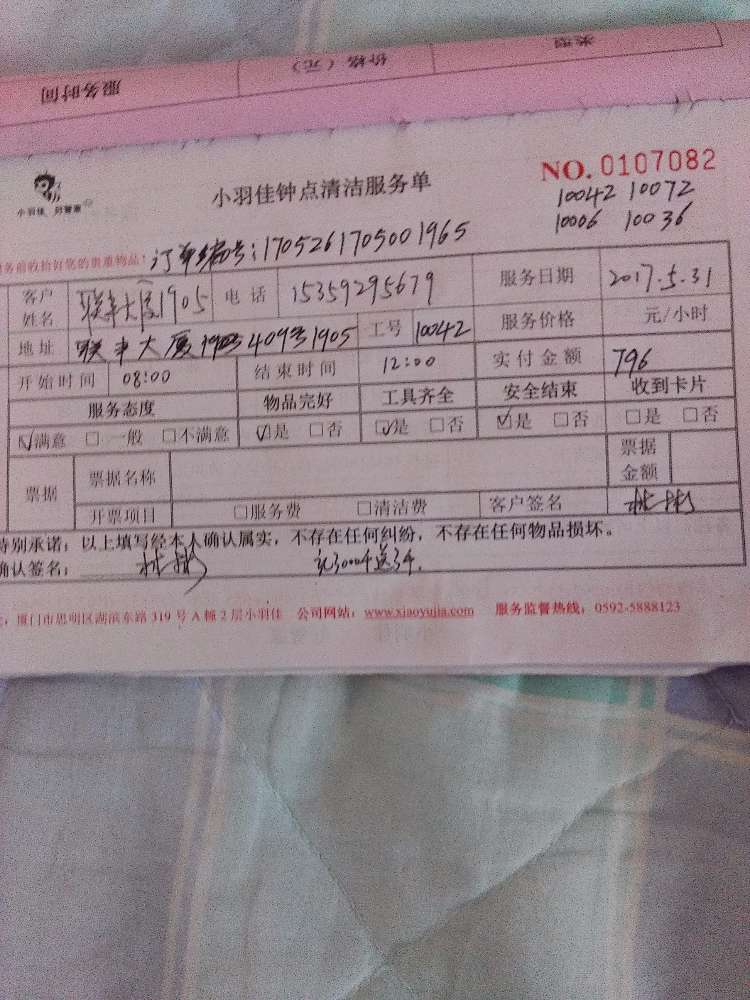 服务时间 价格（元） 类型
小羽佳 好管家
小羽佳钟点清洁服务单
NO. 0107082
10042 10072
10006 10036
务前收拾好您的贵重物品！ 订单编号：1705261705001965
客户姓名 联丰大厦1905 电话 15359295679 服务日期 2017.5.31
地址 联丰大厦 409 1905 工号 10042 服务价格 元/小时
开始时间 08:00 结束时间 12:00 实付金额 796
服务态度 物品完好 工具齐全 安全结束 收到卡片
☑满意 □一般 □不满意 ☑是 □否 ☑是 □否 ☑是 □否 □是 □否
票据 票据名称 票据金额
开票项目 □服务费 □清洁费 客户签名
特别承诺：以上填写经本人确认属实，不存在任何纠纷，不存在任何物品损坏。
确认签名：
厦门市思明区湖滨东路 319 号 A 幢 2 层小羽佳 公司网站：www.xiaoyujia.com 服务监督热线：0592-5888123